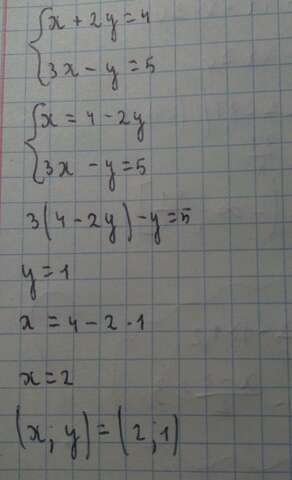 {x + 2y = 4
{3x - y = 5
{x = 4 - 2y
{3x - y = 5
3(4 - 2y) - y = 5
y = 1
x = 4 - 2 · 1
x = 2
(x; y) = (2; 1)